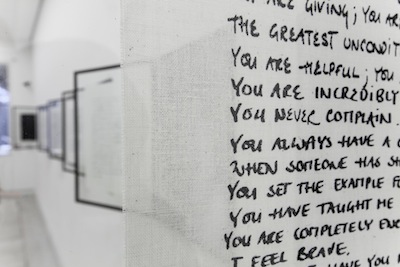 ARE GIVING; YOU AR
THE GREATEST UNCONDIT
YOU ARE HELPFUL; YOU
YOU ARE INCREDIBLY
YOU NEVER COMPLAIN.
YOU ALWAYS HAVE A
WHEN SOMEONE HAS SH
YOU SET THE EXAMPLE F
YOU HAVE TAUGHT ME
YOU ARE COMPLETELY ENC
I FEEL BRAVE.
HAVE YOU